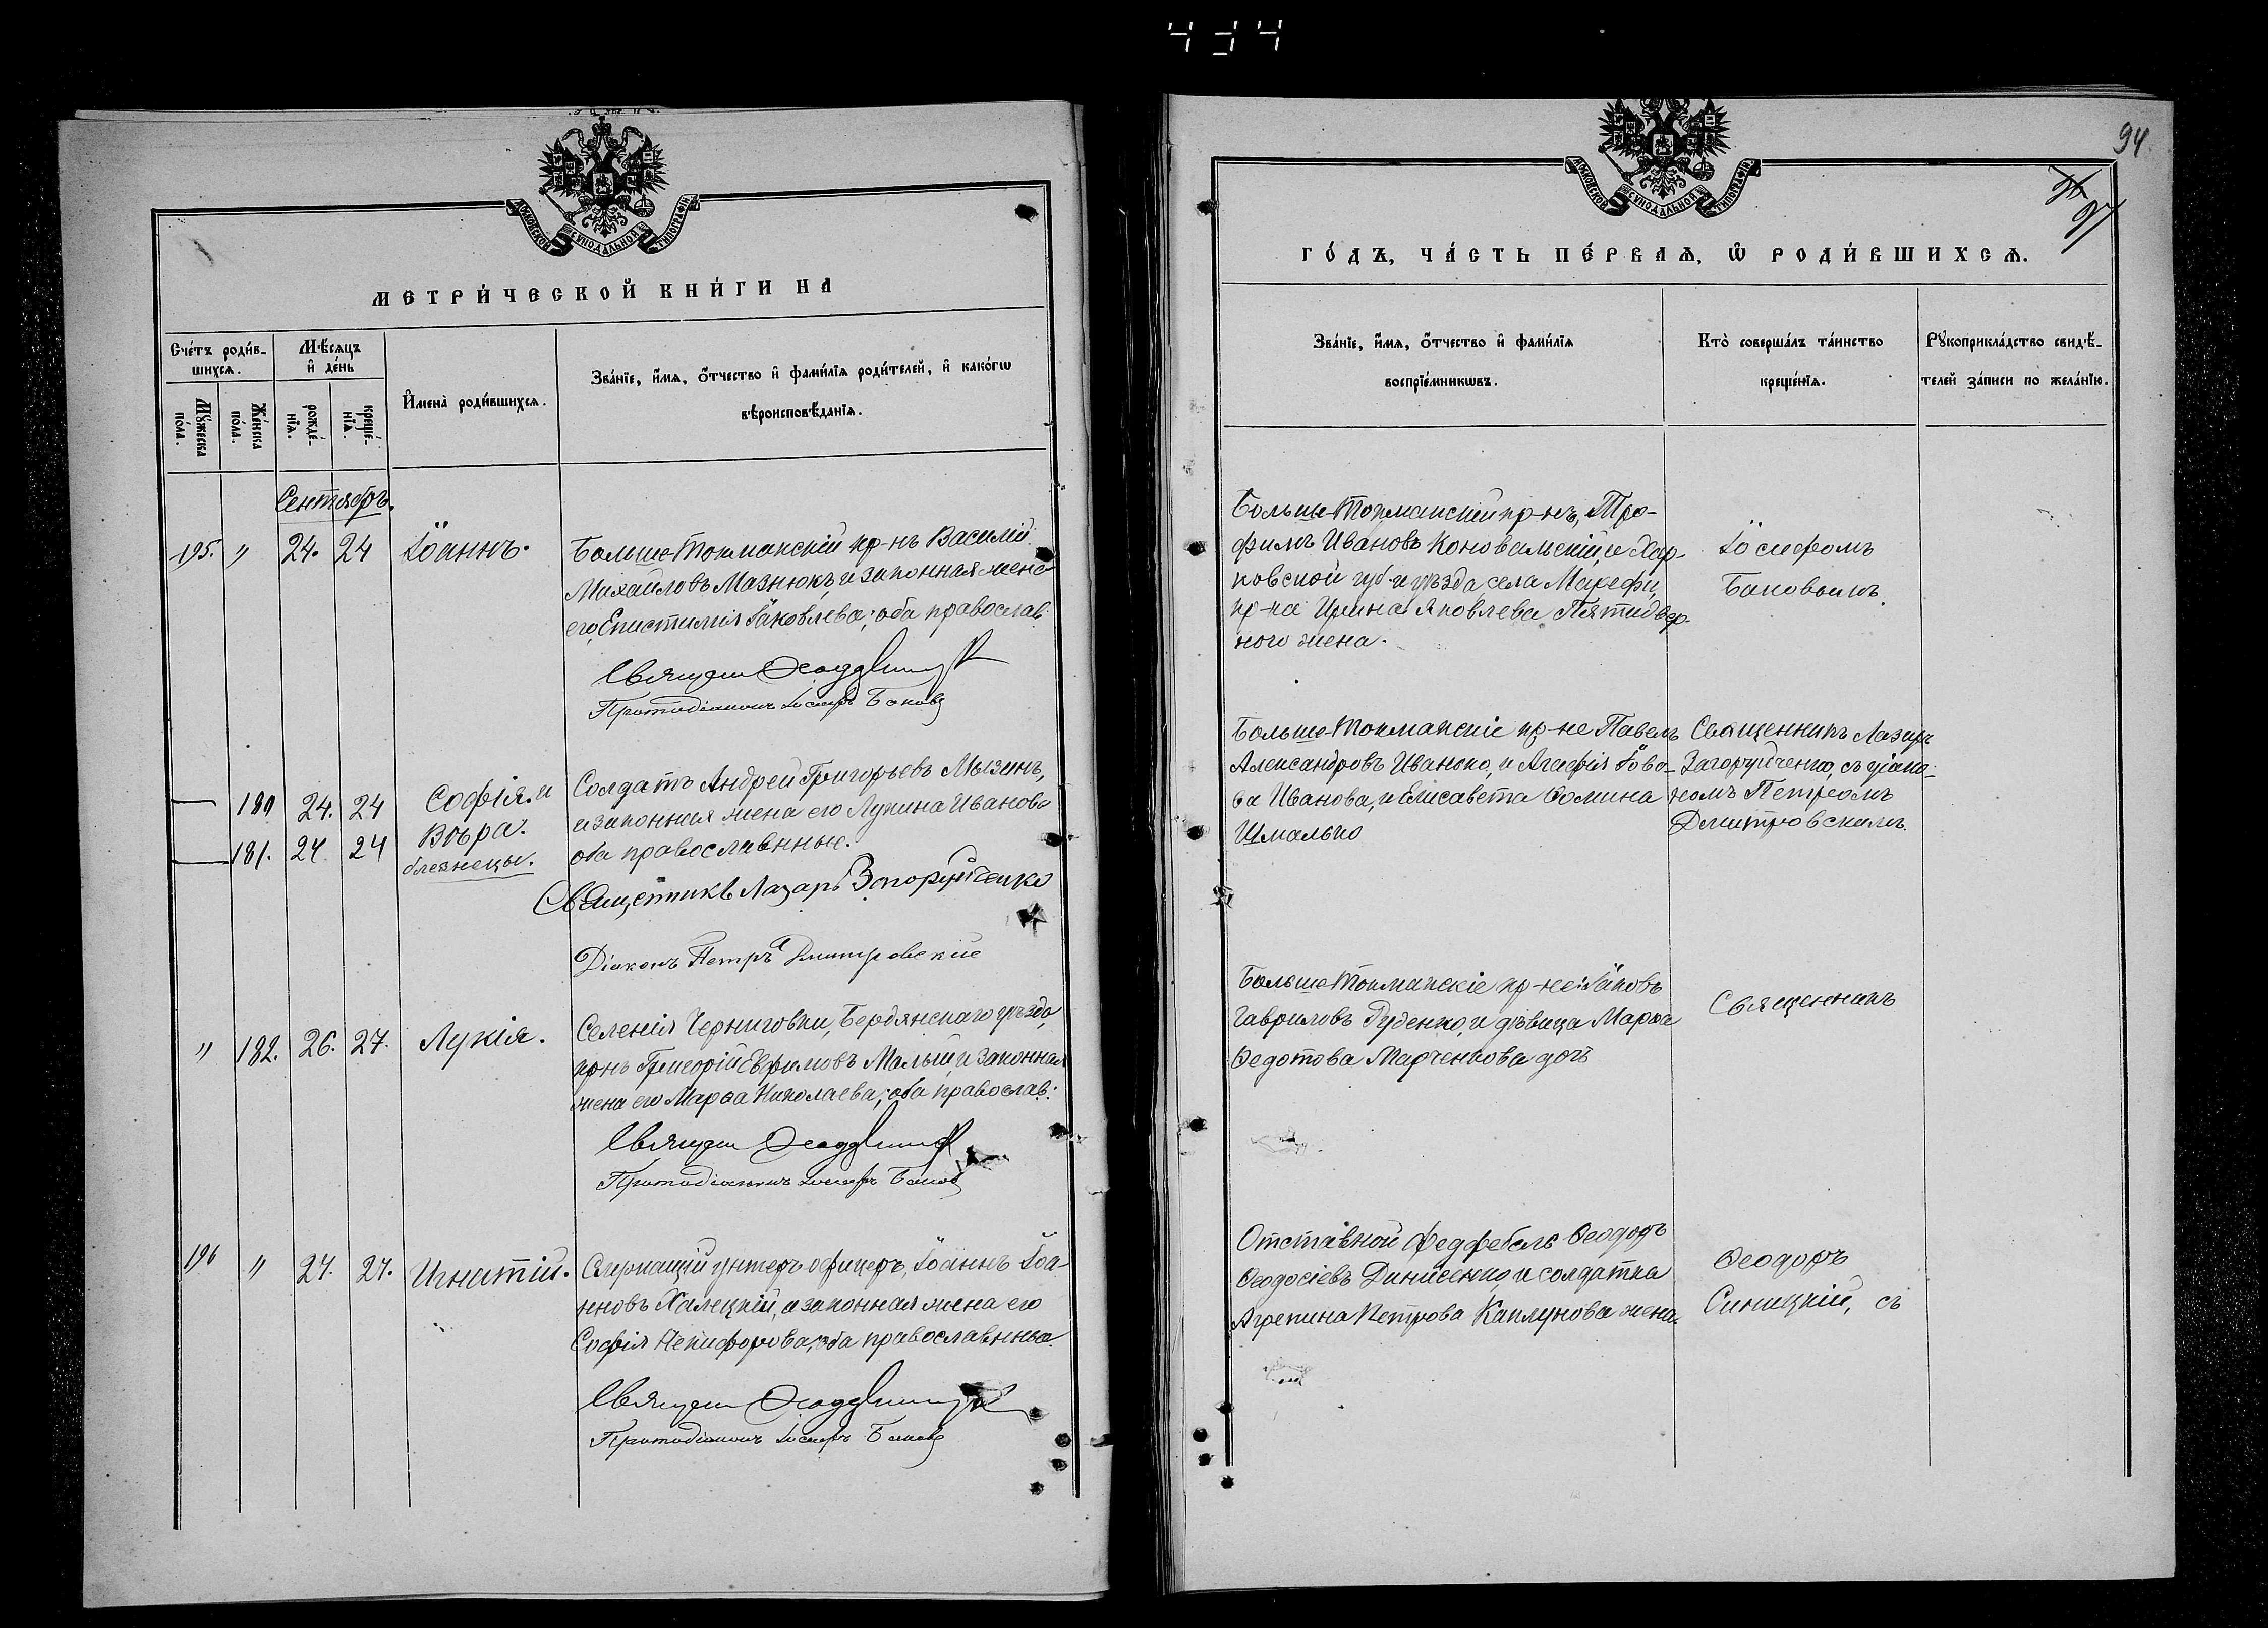 434
94
97
МОСКОВСКОЙ СѴНОДАЛЬНОЙ ТИПОГРАФІИ
МЕТРИ́ЧЕСКОЙ КНИ́ГИ НА
Сче́тъ роди́в-
шихсѧ.
Мꙋ́жеска
по́ла.
Же́нска
по́ла.
Мѣ́сѧцъ
и҆ де́нь
рожде́-
нїѧ.
креще́-
нїѧ.
И҆мена̀ роди́вшихсѧ.
Зва́нїе, и҆́мѧ, ѻ҆́тчество и҆ фами́лїѧ роди́телей, и҆ како́гѡ
вѣроисповѣ́данїѧ.
Сентябрь.
195. " 24. 24 Іоаннъ.
Больше-Токмакскій кр-нъ Василій
Михайловъ Мазнюкъ, и законная жена
его, Епистимія Іаковлева; оба православ:
Священ
Протодіаконъ Іосифъ Баковъ
180 24. 24 Софія. и
181. 24 24 Вѣра.
близнецы.
Солдатъ Андрей Григорьевъ Мызинъ,
и законная жена его Лукина Иванова
оба православные.
Священникъ Лазарь Загоруйченко
Діаконъ Петръ Дмитровскій
" 182. 26. 27. Лукія.
Селенія Черниговки, Бердянскаго уѣзда,
кр-нъ Григорій Евфимовъ Малый, и законная
жена его Марѳа Николаева; оба православ:
Священ
Протодіаконъ Іосифъ Баковъ
196 " 27. 27. Игнатій.
Служащій унтеръ-офицеръ, Іоаннъ Іоан-
нновъ Халецкій, и законная жена его
Софія Никифорова, оба православные.
Священ
Протодіаконъ Іосифъ Баковъ
МОСКОВСКОЙ СѴНОДАЛЬНОЙ ТИПОГРАФІИ
ГО́ДЪ, ЧА́СТЬ ПЕ́РВАѦ, Ѡ҆ РОДИ́ВШИХСѦ.
Зва́нїе, и҆́мѧ, ѻ҆́тчество и҆ фами́лїѧ
воспрїе́мникѡвъ.
Кто̀ соверша́лъ та́инство
креще́нїѧ.
Рꙋкоприкла́дство свидѣ́-
телей за́писи по жела́нїю.
Больше-Токмакскій кр-нъ, Тро-
фимъ Ивановъ Коновальскій, и Хар-
ковской губ. и уѣзда села Мерефи,
кр-ка Ирина Яковлева Пятидвор-
ного жена.
Іосифомъ
Баковымъ.
Больше-Токмакскіе кр-не Павелъ
Александровъ Иванько, и Агафія Іово-
ва Иванова, и Елисавета Ѳомина
Шмалько
Священникъ Лазарь
Загоруйченко, съ діако-
номъ Петромъ
Дмитровскимъ.
Больше Токмакскіе кр-не: Іаковъ
Гавриловъ Руденко, и дѣвица Марѳа
Ѳедотова Марченкова дочь
Священникъ
Отставной федфебель Ѳеодоръ
Ѳеодосіевъ Динисенко и солдатка
Агрепина Петрова Каплунова жена.
Ѳеодоръ
Синицкій, съ